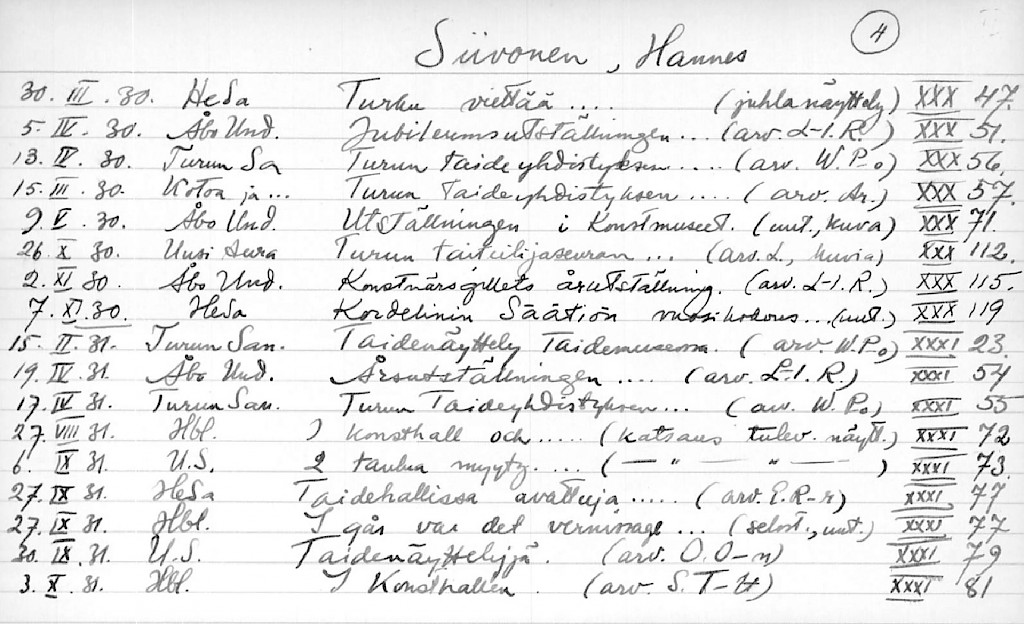 4
Siivonen, Hannes
30. III. 30. HeSa Turku viettää .... (juhlanäyttely) XXX 47.
5. IV. 30. Åbo Und. Jubileumsutställningen... (arv. L-I. R.) XXX 51.
13. IV. 30. Turun Sa Turun taideyhdistyksen .... (arv. W. P-o) XXX 56.
15. III. 30. Kotoa ja... Turun Taideyhdistyksen .... (arv. Ar.) XXX 57.
9. V. 30. Åbo Und. Utställningen i Konstmuseet. (uut., kuva) XXX 71.
26. X 30. Uusi Aura Turun taiteilijaseuran ... (arv. L., kuvia) XXX 112.
2. XI 30. Åbo Und. Konstnärsgillets årsutställning. (arv. L-I. R.) XXX 115.
7. XI. 30. HeSa Kordelinin Säätiön vuosikokous...(uut.) XXX 119
15. II. 31. Turun San. Taidenäyttely Taidemuseossa. (arv. W. P-o) XXXI 23.
19. IV. 31. Åbo Und. Årsutställningen .... (arv. L-I. R.) XXXI 54
17. IV 31. Turun San. Turun Taideyhdistyksen... (arv. W. P-o) XXXI 55
27. VIII 31. Hbl. I konsthall och ..... (katsaus tulev. näytt.) XXXI 72
6. IX 31. U.S. 2 taulua myyty. ... (— " — " —) XXXI 73.
27. IX 31. HeSa Taidehallissa avattuja ..... (arv. E. R-r) XXXI 77
27. IX 31. Hbl. I går var det vernissage ... (selost., uut.) XXXI 77
30. IX. 31. U.S. Taidenäyttelyjä. (arv. O. O-n) XXXI 79
3. X. 31. Hbl. I Konsthallen. (arv. S. T-H) XXXI 81